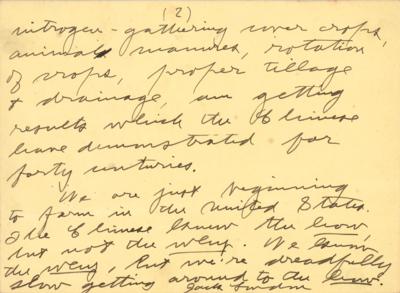 (2)
nitrogen-gathering cover crops,
animal manures, rotation
of crops, proper tillage
& drainage, am getting
results which the Chinese
have demonstrated for
forty centuries.
We are just beginning
to farm in the United States.
The Chinese knew the how,
but not the why. We know
the why, but we're dreadfully
slow getting around to the how.
Jack London